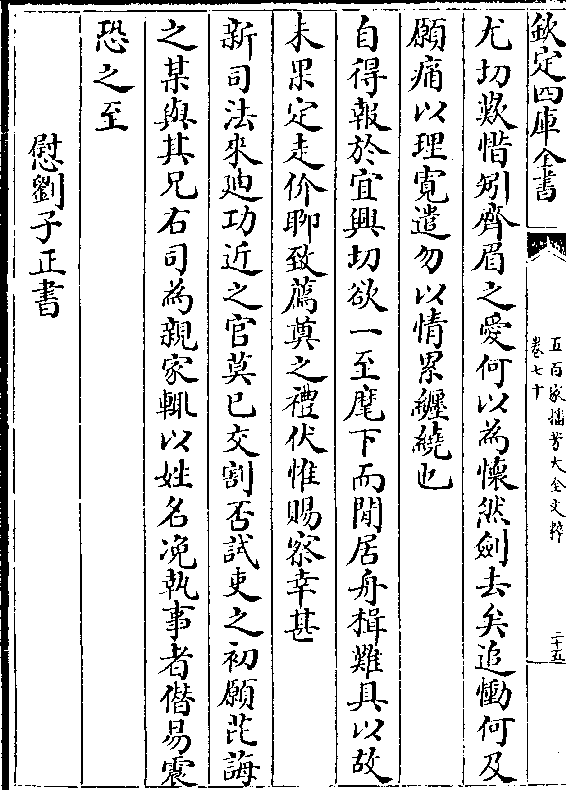 欽定四庫全書
五百家播芳大全文粹
卷七十
二十五
尤切歎惜矧齊眉之愛何以為懷然劍去矣追慟何及
願痛以理寛遣勿以情累纏繞也
自得報於宜興切欲一至麾下而閒居舟楫難具以故
未果定走价聊致薦奠之禮伏惟賜察幸甚
新司法來廸功近之官莫已交割否試吏之初願芘誨
之某與其兄右司為親家輒以姓名凂執事者僣易震
恐之至
慰劉子正書